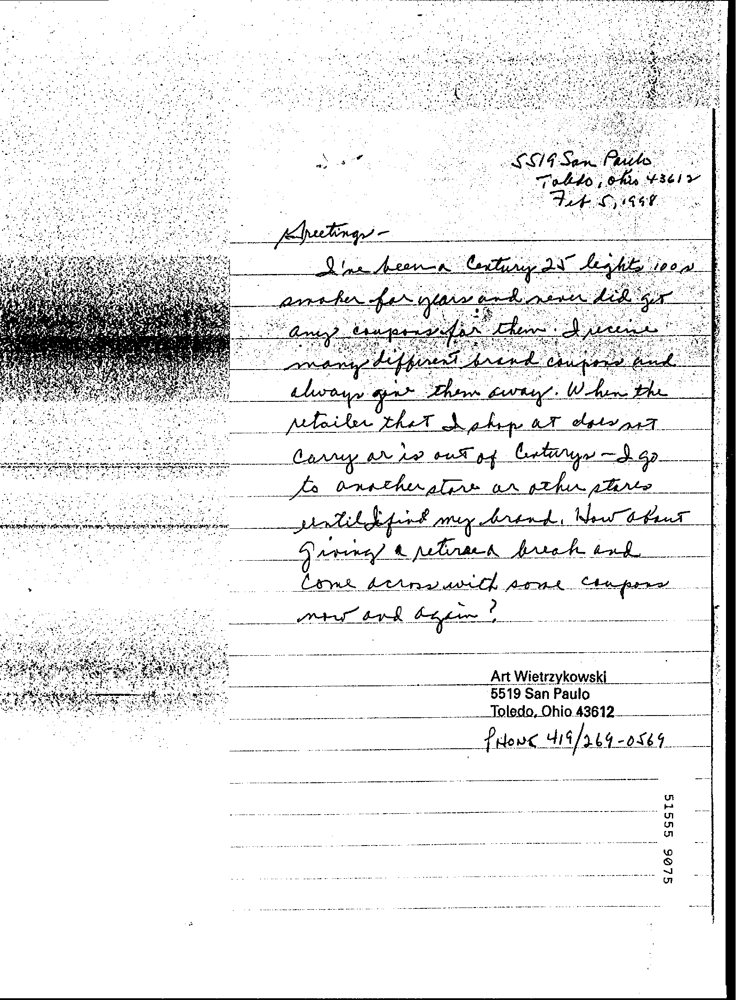 5519 San Paulo
Toledo, Ohio 43612
Feb 5, 1998
Greetings-
I've been a Century 25 lights 100s
smoker for years and never did get
any coupons for them. I receive
many different brand coupons and
always give them away. When the
retailer that I shop at does not
carry or is out of Centurys - I go
to another store or other stores
until I find my brand. How about
giving a retiree a break and
come across with some coupons
now and again?
Art Wietrzykowski
5519 San Paulo
Toledo, Ohio 43612
PHONE 419/269-0569
51555 9075